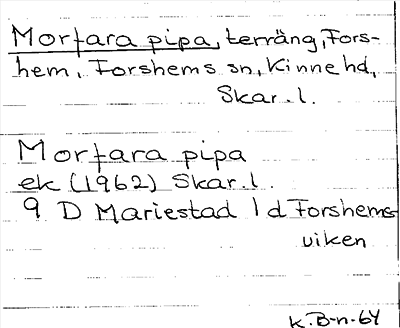 Morfara pipa, terräng, Fors-
hem, Forshems sn, Kinne hd,
Skar. l.
Morfara pipa
ek (1962) Skar. l.
9 D Mariestad 1 d Forshems-
viken
K. B-n-64